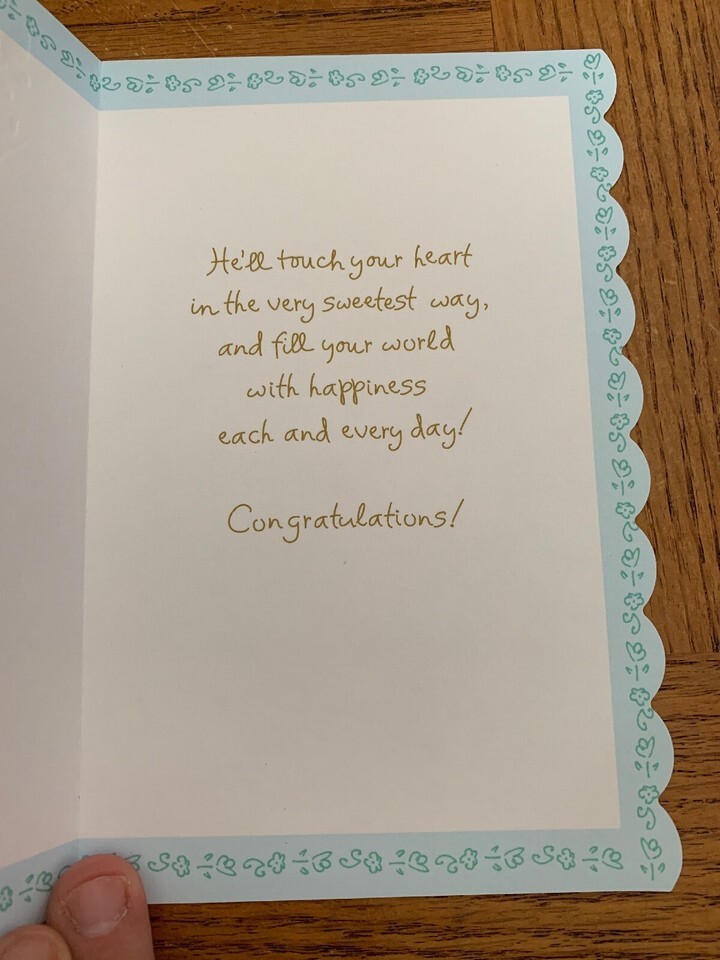 He'll touch your heart
in the very sweetest way,
and fill your world
with happiness
each and every day!
Congratulations!